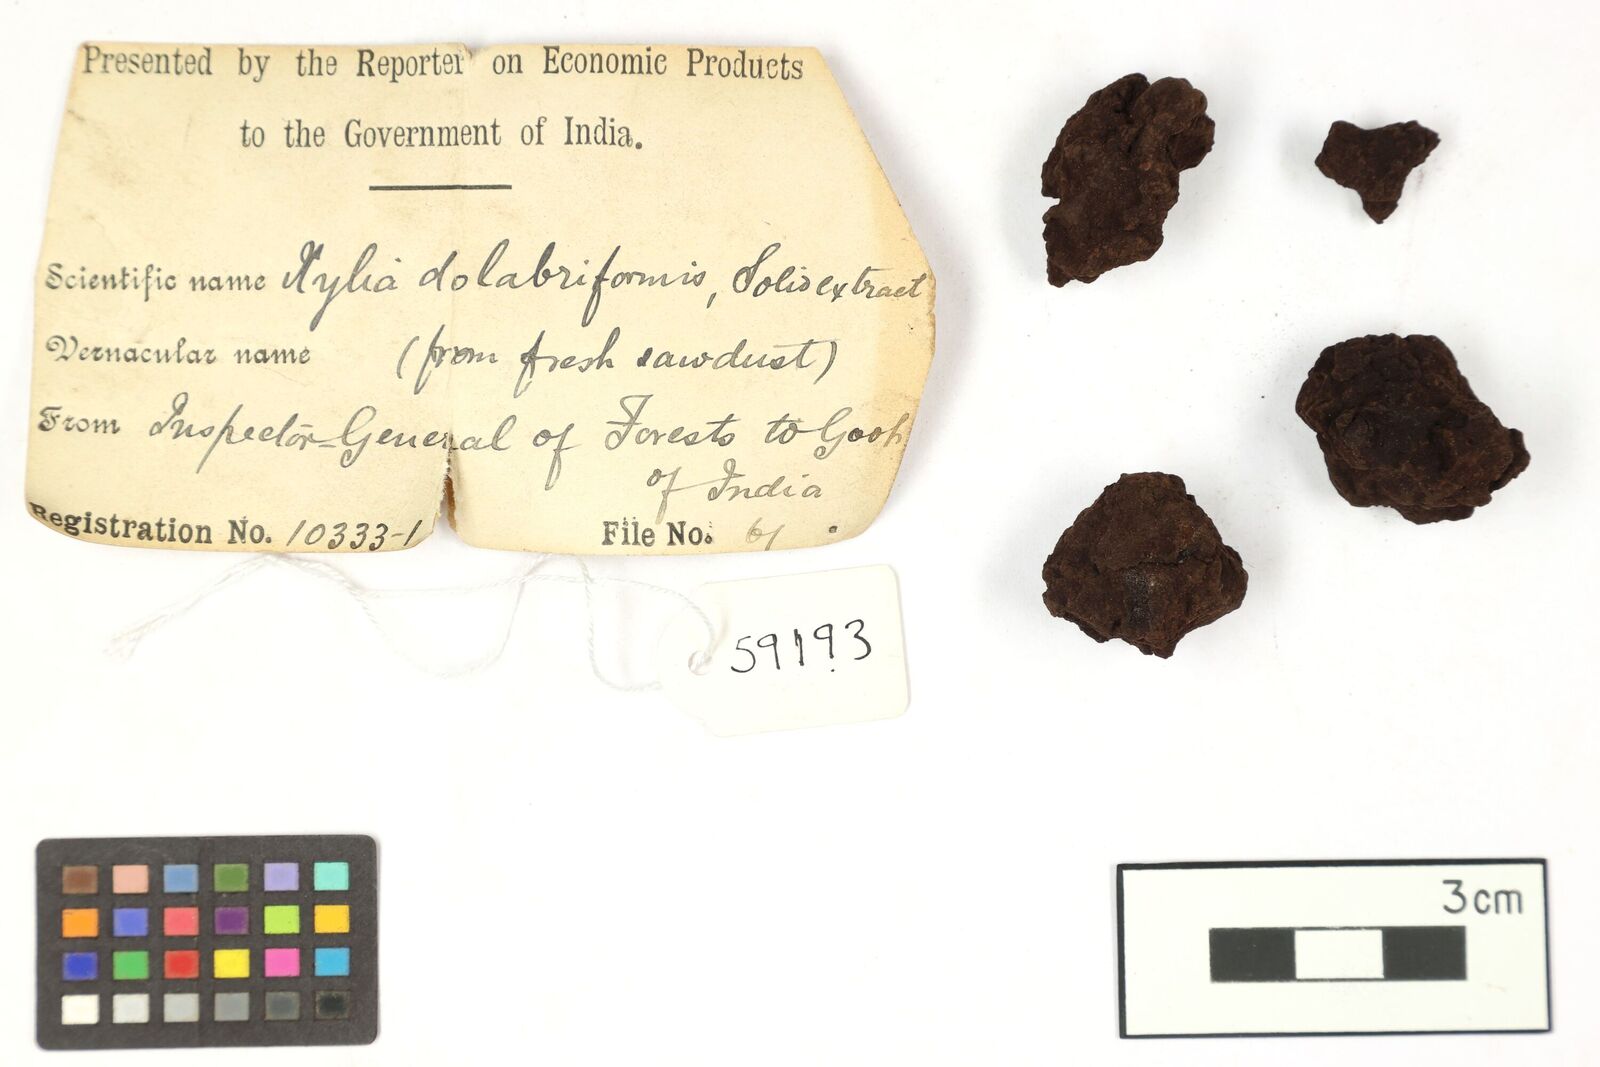 Presented by the Reporter on Economic Products
to the Government of India.
Scientific name Xylia dolabriformis, Solid extract
Vernacular name (from fresh sawdust)
From Inspector-General of Forests to Govt
of India
Registration No. 10333-1 File No.
59193
3cm